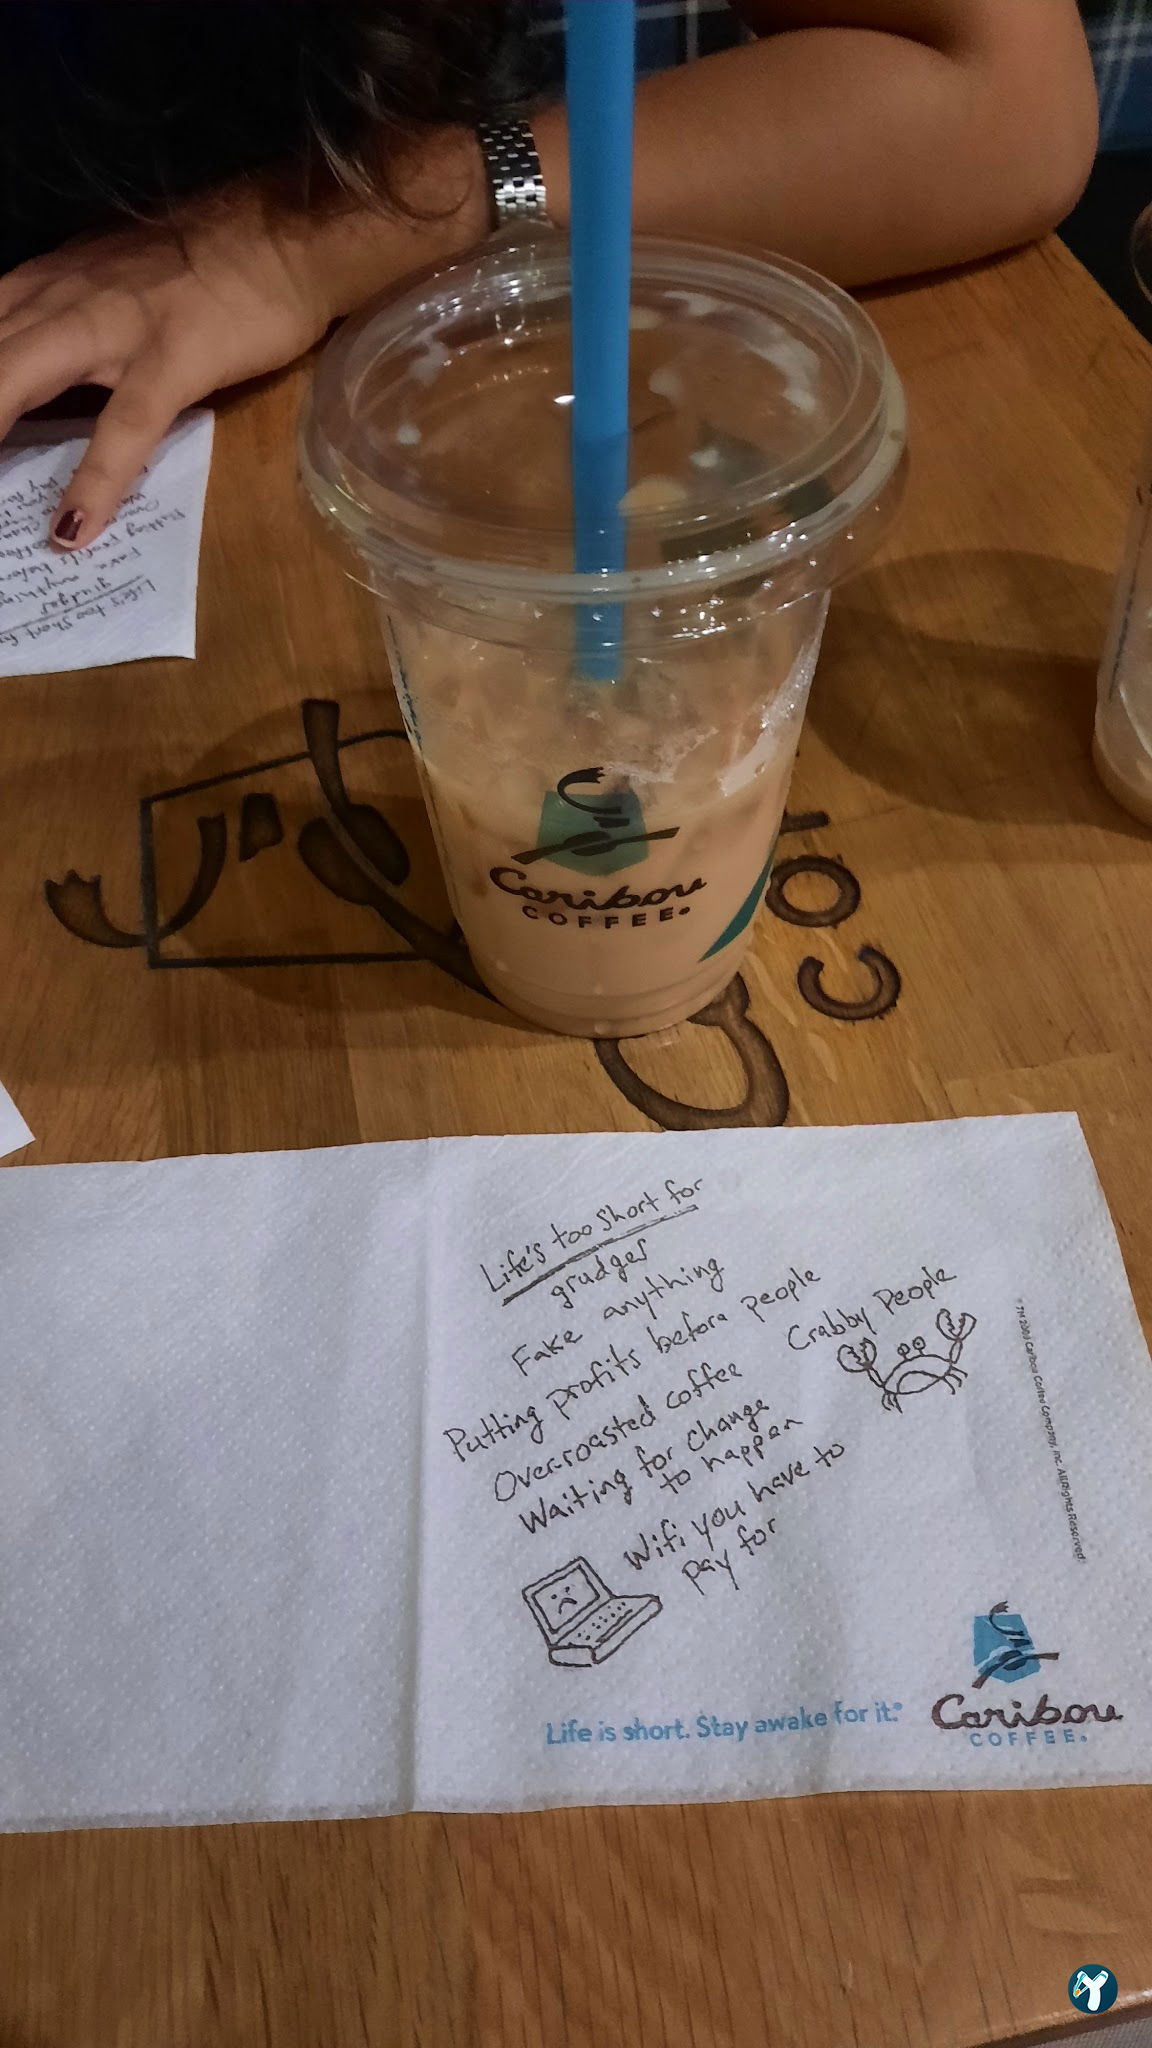 Life's too short for
grudges
Fake anything
Putting profits before people
Over-roasted coffee
Waiting for change
to happen
Wifi you have to
pay for
Crabby People
Life is short. Stay awake for it.®
Caribou
COFFEE®
™ 2009 Caribou Coffee Company, Inc. All Rights Reserved.
Caribou
COFFEE®
Life's too short for
grudges
Fake anything
Putting profits before
coffee
Y